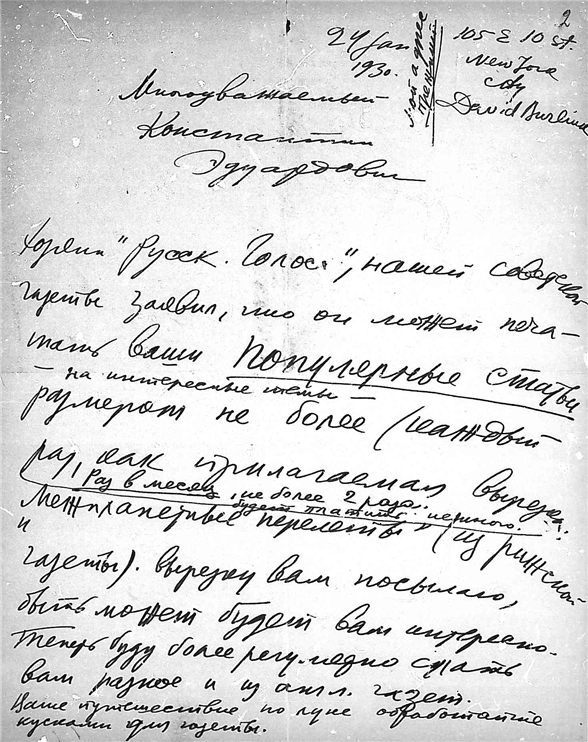 2
24 Jan
1930.
мой адрес
прежний
105 E 10 st.
New York
City
David Burliuk
Многоуважаемый
Константин
Эдуардович
Хозяин "Русск. Голоса", нашей советской
газеты заявил, что он может печа-
тать ваши популярные статьи
— на интересные темы —
размером не более (каждый
раз, как прилагаемая вырезка.
Раз в месяц, не более 2 раза.
будет платить немного.
Межпланетные перелеты" (из рижской
и
газеты). вырезку вам посылаю,
быть может будет вам интересно.
Теперь буду более регулярно слать
вам разное и из англ. газет.
Ваше путешествие по луне обработайте
кусками для газеты.